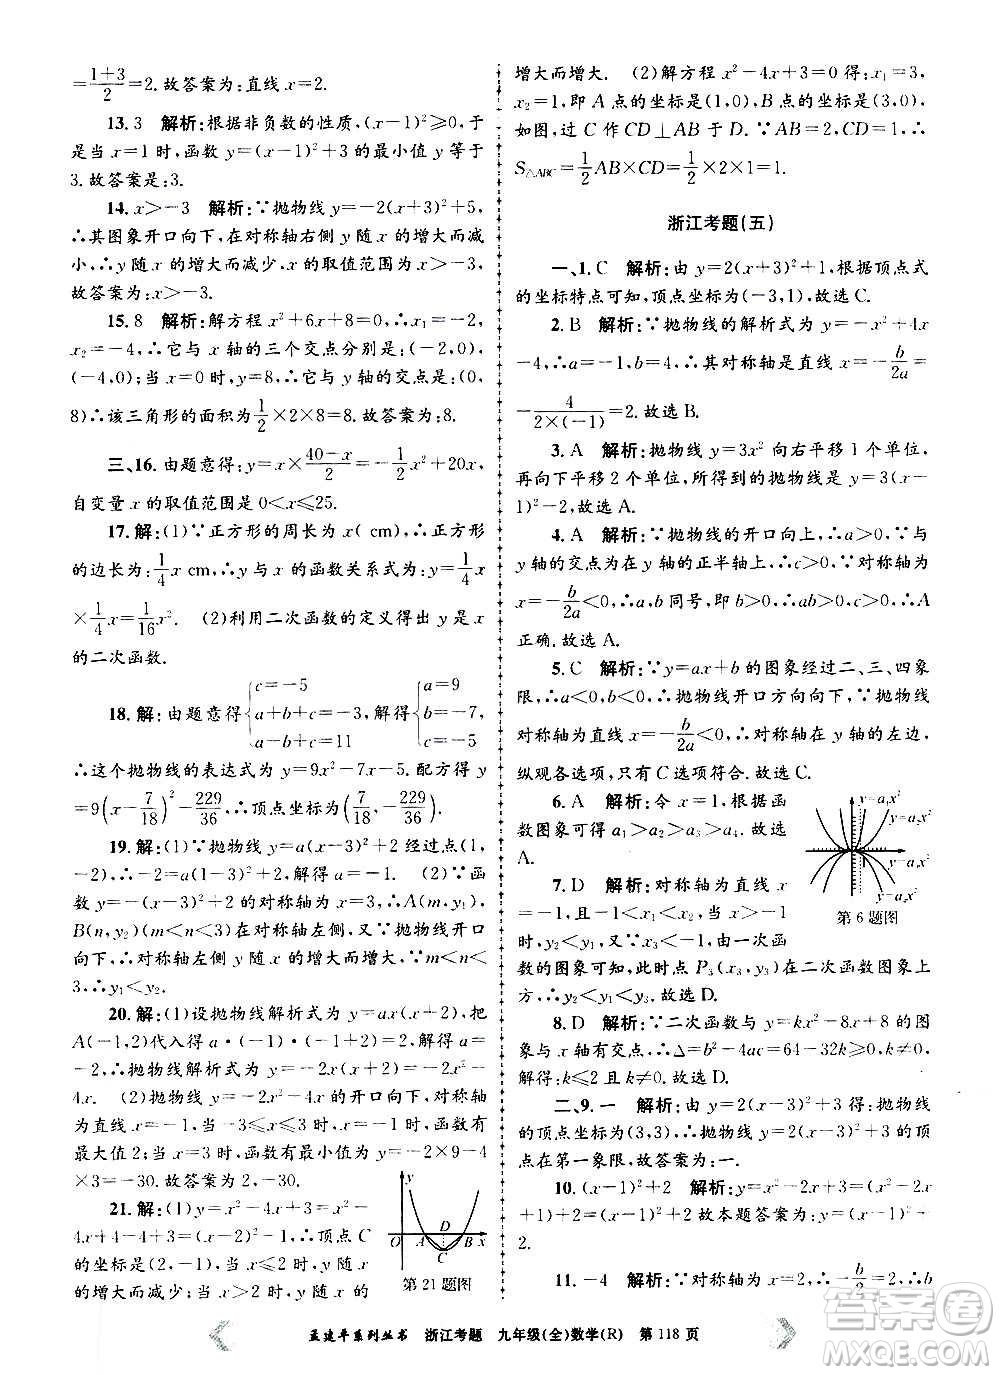 =\frac{1+3}{2}=2. 故答案为:直线 x=2.
13. 3 解析:根据非负数的性质,(x-1)²≥0,于
是当 x=1 时,函数 y=(x-1)²+3 的最小值 y 等于
3. 故答案是:3.
14. x>-3 解析:∵抛物线 y=-2(x+3)²+5,
∴其图象开口向下,在对称轴右侧 y 随 x 的增大而减
小,∴y 随 x 的增大而减少,x 的取值范围是 x>-3.
故答案为:x>-3.
15. 8 解析:解方程 x²+6x+8=0,∴x₁=-2,
x₂=-4,∴它与 x 轴的三个交点分别是:(-2,0),
(-4,0);当 x=0 时,y=8,∴它与 y 轴的交点是:(0,
8)∴该三角形的面积为\frac{1}{2}×2×8=8. 故答案为:8.
三、16. 由题意得:y=x×\frac{40-x}{2}=-\frac{1}{2}x²+20x,
自变量 x 的取值范围是 0<x≤25.
17. 解:(1)∵正方形的周长为 x( cm),∴正方形
的边长为:\frac{1}{4}x cm,∴y 与 x 的函数关系式为:y=\frac{1}{4}x
×\frac{1}{4}x=\frac{1}{16}x². (2)利用二次函数的定义得出 y 是 x
的二次函数.
18. 解:由题意得{c=-5 a+b+c=-3, a-b+c=11 解得{a=9 b=-7, c=-5
∴这个抛物线的表达式为 y=9x²-7x-5. 配方得 y
=9(x-\frac{7}{18})²-\frac{229}{36},∴顶点坐标为(\frac{7}{18},-\frac{229}{36}).
19. 解:(1)∵抛物线 y=a(x-3)²+2 经过点(1,
-2),∴-2=a(1-3)²+2,解得 a=-1. (2)∵函
数 y=-(x-3)²+2 的对称轴为 x=3,∴A(m,y₁)、
B(n,y₂)(m<n<3)在对称轴左侧,又∵抛物线开口
向下,∴对称轴左侧 y 随 x 的增大而增大,∵m<n<
3,∴y₁<y₂.
20. 解:(1)设抛物线解析式为 y=ax(x+2),把
A(-1,2)代入得 a·(-1)·(-1+2)=2,解得 a=
-2,所以抛物线解析式为 y=-2x(x+2),即 y=-2x²-
4x. (2)抛物线 y=-2x²-4x 的开口向下,对称轴
为直线 x=-1,当-3≤x≤3 时,x=-1,y 有最
大值 2;当 x=3 时,y 有最小值,最小值=-2×9-4
×3=-30. 故答案为 2,-30.
21. 解:(1)y=x²-4x+3=
x²-4x+4-4+3=(x-2)²-1,C
的坐标为(2,-1),当 x<2 时 y 随 x
增大而减少;当 x>2 时,y 随 x
第 21 题图
增大而增大. (2)解方程 x²-4x+3=0 得:x₁=3,
x₂=1,即 A 点的坐标是(1,0),B 点的坐标是(3,0).
如图,过 C 作 CD⊥AB 于 D. ∵AB=2,CD=1,∴
S△ABC=\frac{1}{2}AB×CD=\frac{1}{2}×2×1=1.
浙江考题(五)
一、1. C 解析:由 y=2(x+3)²+1,根据顶点式
的坐标特点可知,顶点坐标为(-3,1),故选 C.
2. B 解析:∵抛物线的解析式为 y=-x²+4x
-4,∴a=-1,b=4,∴其对称轴是直线 x=-\frac{b}{2a}=
-\frac{4}{2×(-1)}=2. 故选 B.
3. A 解析:抛物线 y=3x² 向右平移 1 个单位,
再向下平移 2 个单位,所得到的抛物线是 y=3(x-
1)²-2,故选 A.
4. A 解析:∵抛物线的开口向上,∴a>0,∵抛物线与
y 轴的交点在 y 轴的正半轴上,∴c>0,∵对称轴为
x=-\frac{b}{2a}<0,∴a,b 同号,即 b>0,∴abc>0,∴A
正确. 故选 A.
5. C 解析:∵y=ax+b 的图象经过二、三、四象
限,∴a<0,b<0,∴抛物线开口方向向下,∵抛物线
对称轴为直线 x=-\frac{b}{2a}<0,∴对称轴在 y 轴的左边,
纵观各选项,只有 C 选项符合. 故选 C.
6. A 解析:令 x=1,根据函
数图象可得 a₁>a₂>a₃>a₄. 故选
A.
y=a₁x²
y=a₂x²
y=a₄x²
第 6 题图
7. D 解析:对称轴为直线 x
=-1,且-1<x₁<x₂,当 x>-1
时,y₂<y₁,又因为 x₃<-1,由一次函
数的图象可知,此时点 P₃(x₃,y₃)在二次函数图象上
方,∴y₂<y₁<y₃. 故选 D.
8. D 解析:∵二次函数与 y=kx²-8x+8 的图
象与 x 轴有交点,∴Δ=b²-4ac=64-32k≥0,k≠0,
解得:k≤2 且 k≠0. 故选 D.
二、9. 一 解析:由 y=2(x-3)²+3 得:抛物线
的顶点坐标为(3,3),∴抛物线 y=2(x-3)²+3 的顶点
在第一象限. 故答案为:一.
10. (x-1)²+2 解析:y=x²-2x+3=(x²-2x
+1)+2=(x-1)²+2 故本题答案为:y=(x-1)²+
2.
11. -4 解析:∵对称轴为 x=2,∴-\frac{b}{2a}=
孟建平系列丛书 浙江考题 九年级(全)数学(R) 第 118 页